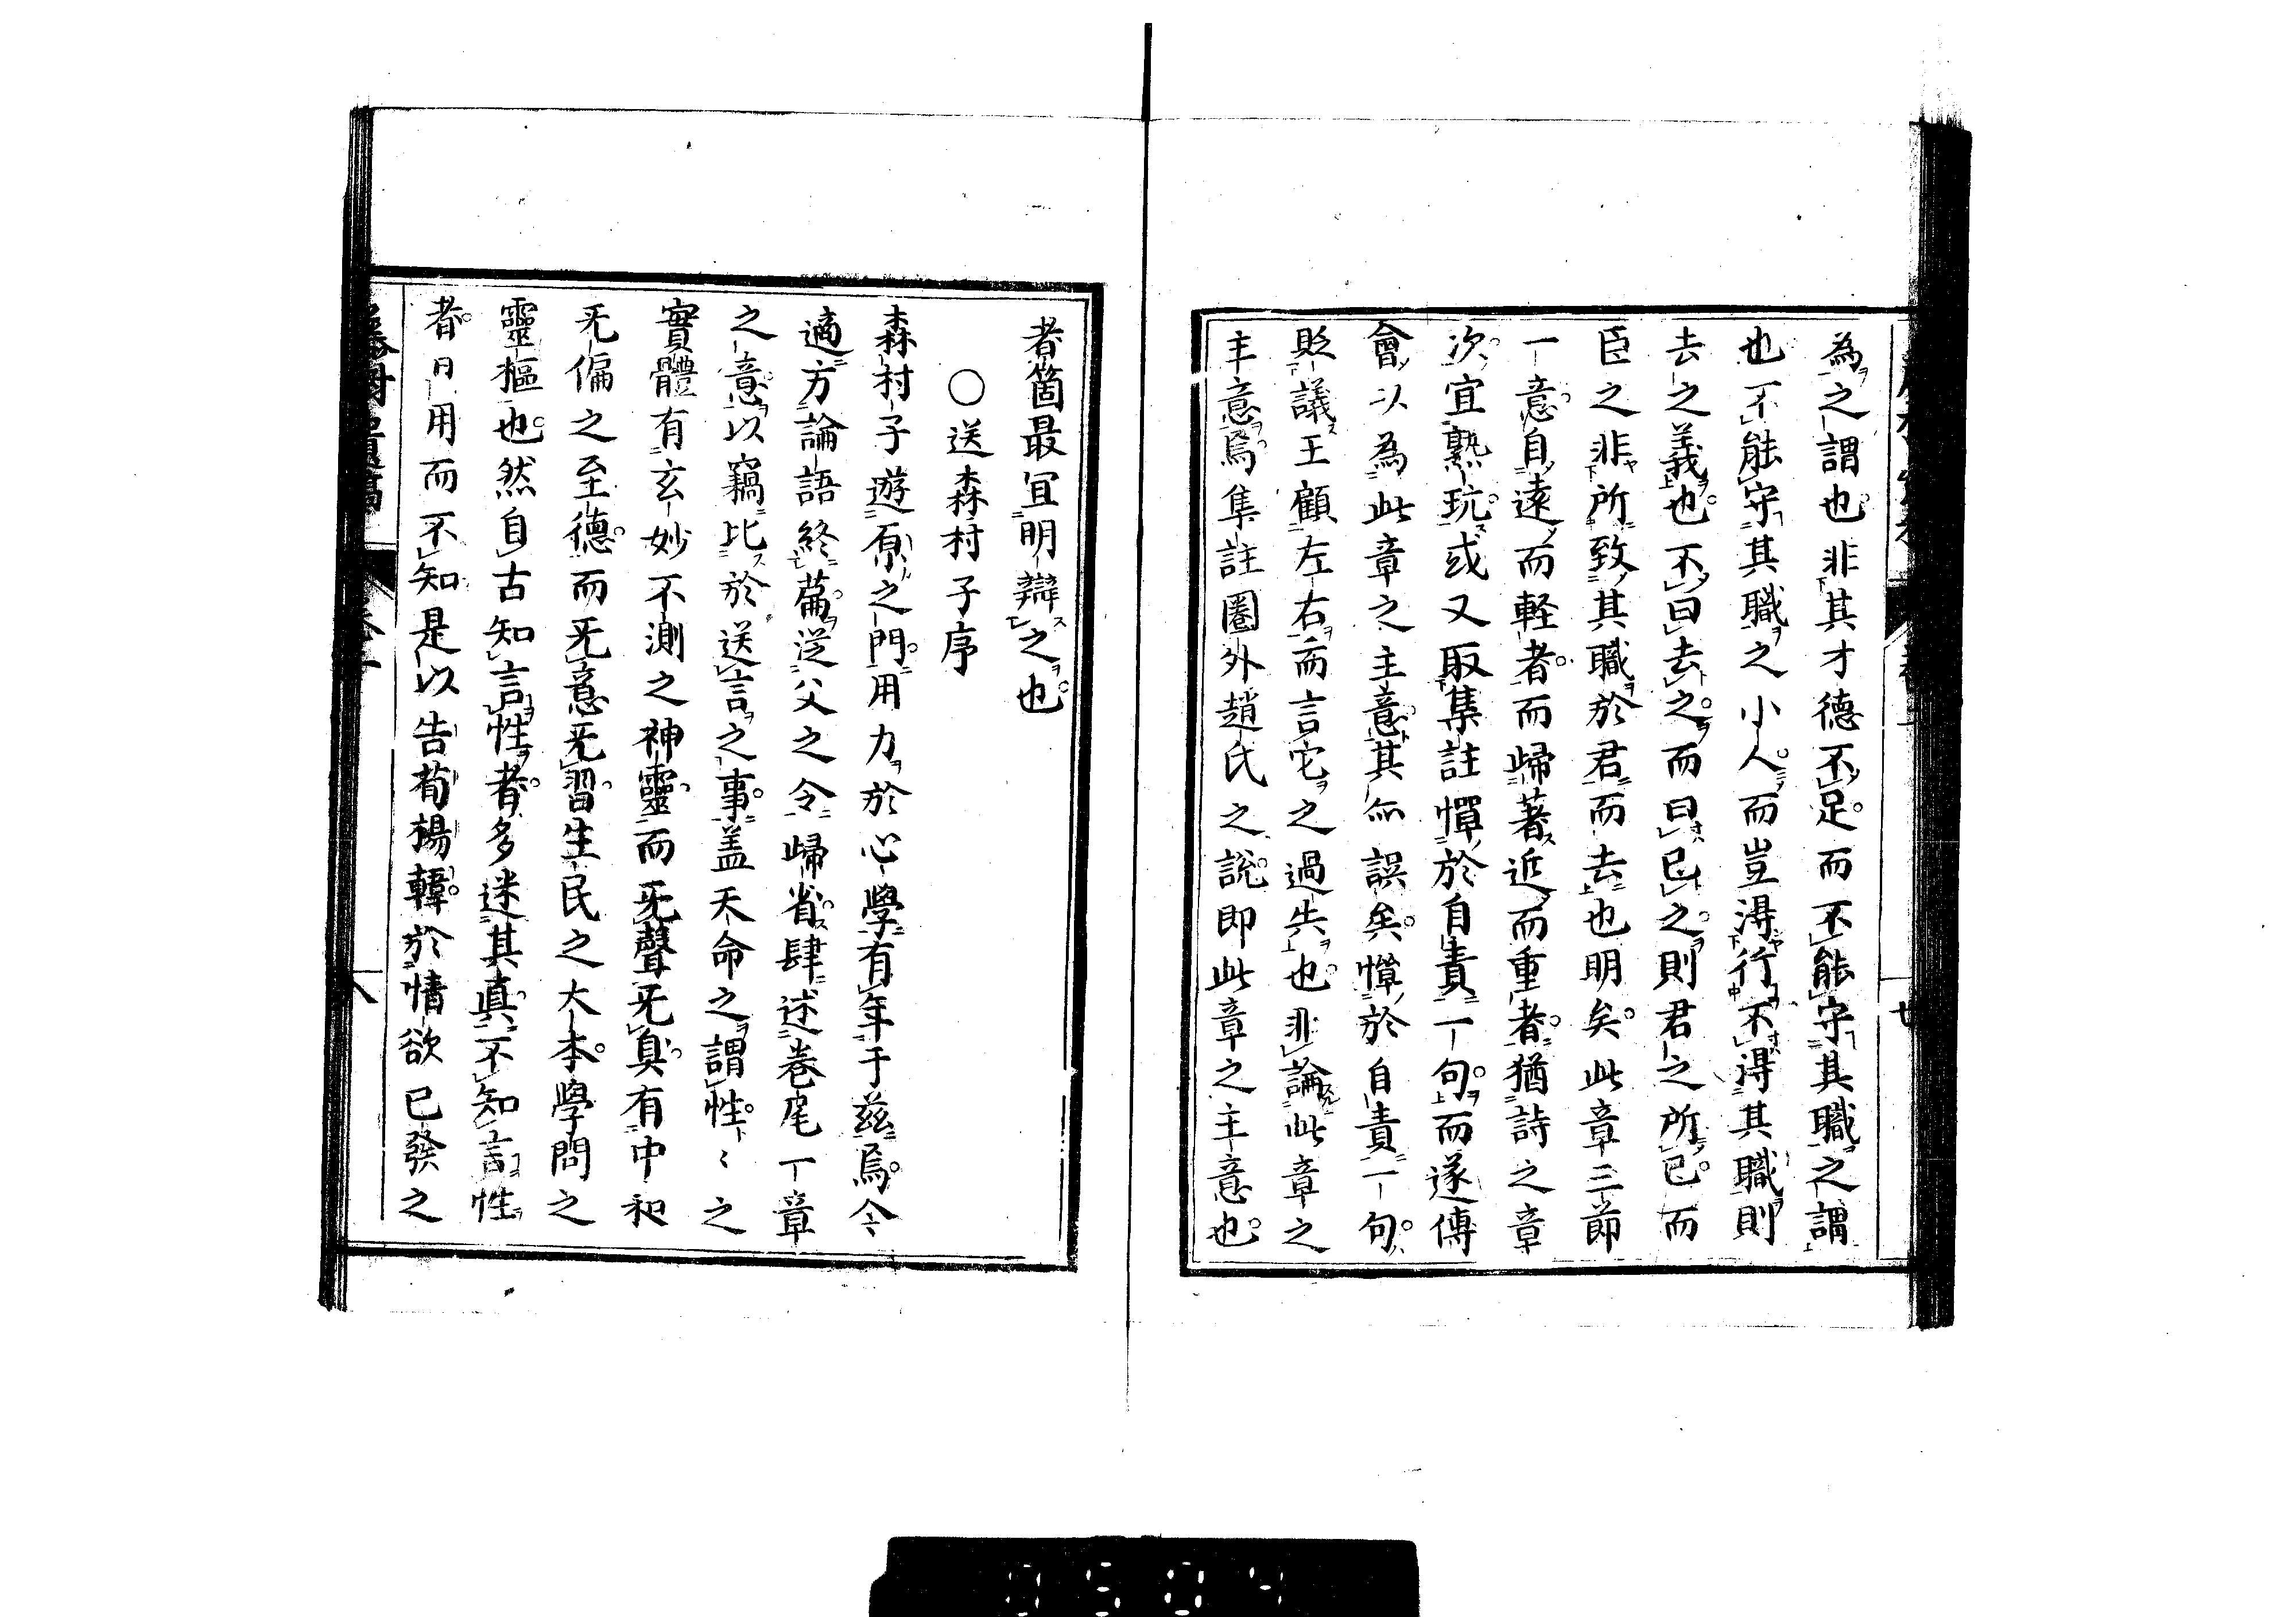 為之謂也非其才德不足而不能守其職之謂
也不能守其職之小人而豈淂行不淂其職則
去之義也不曰去之而曰已之則君之所已而
臣之非所致其職於君而去也明矣此章三節
一意自遠而輕者而歸著近而重者猶詩之章
次宜熟玩或又取集註憚於自責一句而遂傅
會以為此章之主意其亦誤矣憚於自責一句
貶議王顧左右而言它之過失也非論此章之
主意焉集註圈外趙氏之說即此章之主意也
者箇最宜明辯之也
○送森村子序
森村子遊原之門用力於心學有年于茲焉今
適方論語終篇従父之令歸省肆述卷尾一章
之意以竊比於送言之事盖天命之謂性〻之
實體有玄妙不測之神靈而旡聲旡臭有中和
旡偏之至德而旡意旡習生民之大本學問之
靈樞也然自古知言性者多迷其真不知言性
者日用而不知是以告荀楊韓於情欲已發之